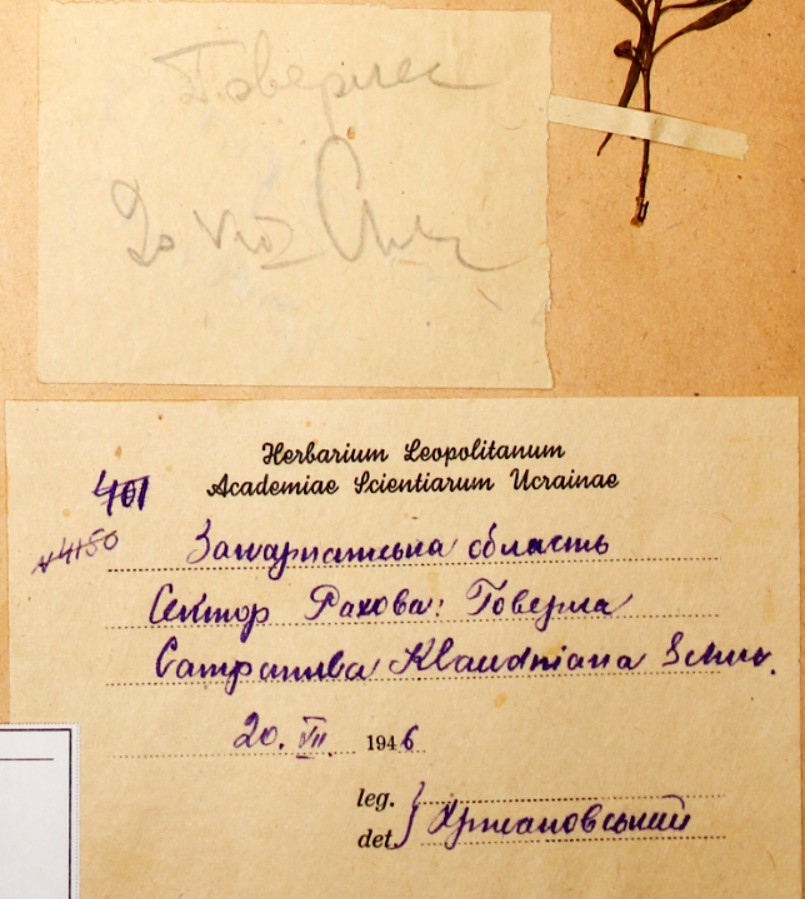 Говерла
20 VII
Herbarium Leopolitanum
Academiae Scientiarum Ucrainae
401
N 4150
Закарпатська область
Сектор Рахова: Говерла
Campanula Klaudniana Schur.
20. VII. 1946
leg.
det.